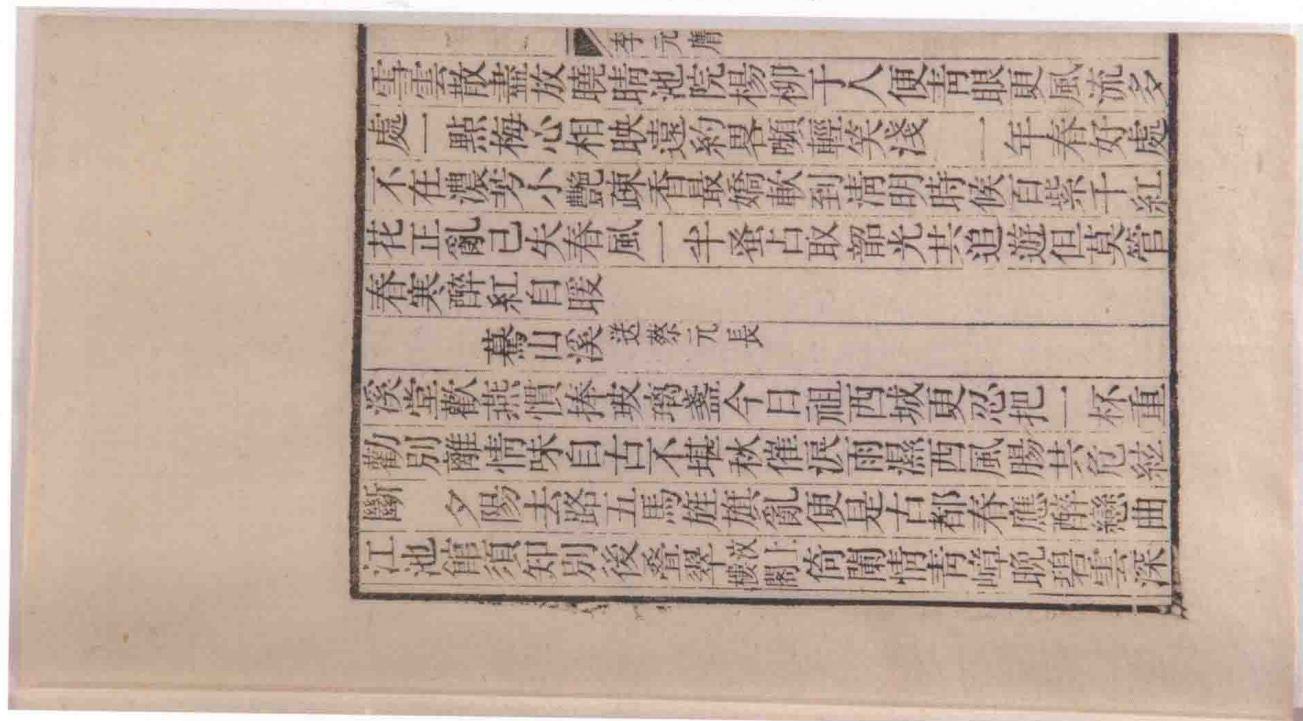 李元膺
雪雲散盡放曉晴池院楊柳于人便青眼更風流多
處一點梅心相映遠約畧顰輕笑淺　一年春好處
不在濃芳小艷疎香最嬌軟到淸明時候百紫千紅
花正亂已失春風一半蚤占取韶光共追遊但莫管
春寒醉紅自暖
驀山溪送蔡元長
溪堂歡燕慣捧玻璃盞今日祖西城更忍把一杯重
勸別離情味自古不堪秋催淚雨濕西風腸共危絃
斷　夕陽去路五馬旌旗亂便是古都春應醉戀曲
江池館須知別後叠翠汶上閣倚闌情靑嶂晚碧雲深